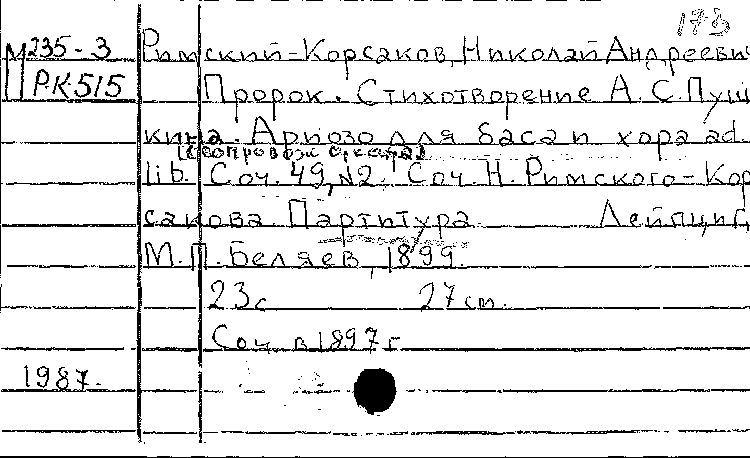 173
М235-3 Римский-Корсаков, Николай Андреевич
Р.К515 Пророк. Стихотворение А.С.Пуш
кина. Ариозо для баса и хора ad.
(с сопровожд оркестра)
lib. Соч. 49, №2. Соч. Н. Римского-Кор
сакова. Партитура. Лейпциг,
М.П.Беляев, 1899.
23с 27cm.
Соч в 1897г
1987.